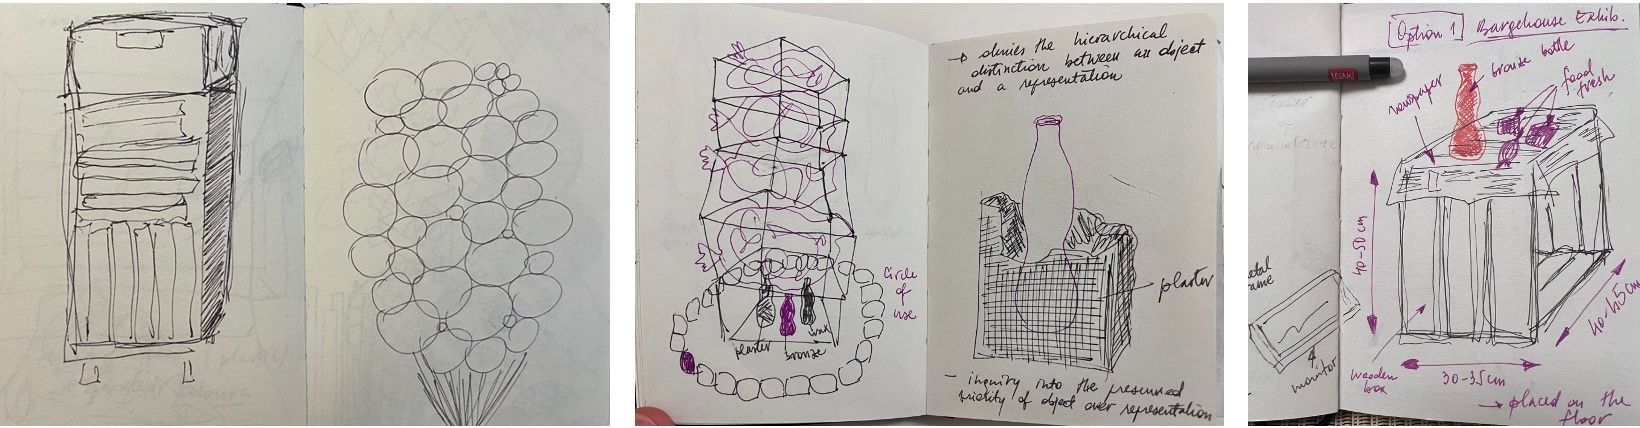 Circle
of
use
plaster
bronze
→ denies the hierarchical
distinction between an object
and a representation
plaster
- inquiry into the presumed
priority of object over representation
LEGAMI
metal
frame
monitor
Option 1 Bargehouse Exhib.
bronze bottle
newspaper
food
fresh
40-50 cm
40-45 cm
30-35 cm
wooden
box
→ placed on the
floor